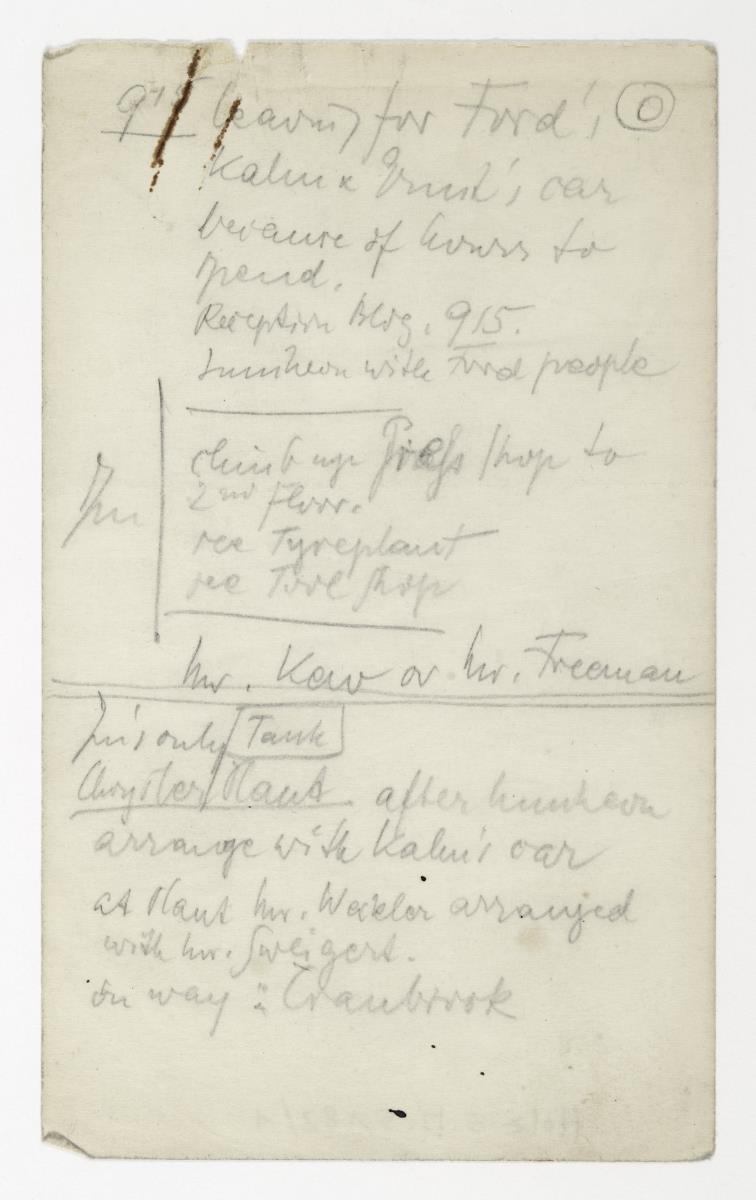 9 15 leaving for Ford's O
Kahn & Ernst's car
because of hours to
spend.
Reception Bldg. 915.
Luncheon with Ford people
climb up Press Shop to
2nd floor.
see Tyreplant
see Tool Shop
Mr. Kew or Mr. Freeman
only Tank
Chrysler Plant after luncheon
arrange with Kahn's car
at Plant Mr. Weckler arranged
with Mr. Sweigert.
on way : Cranbrook